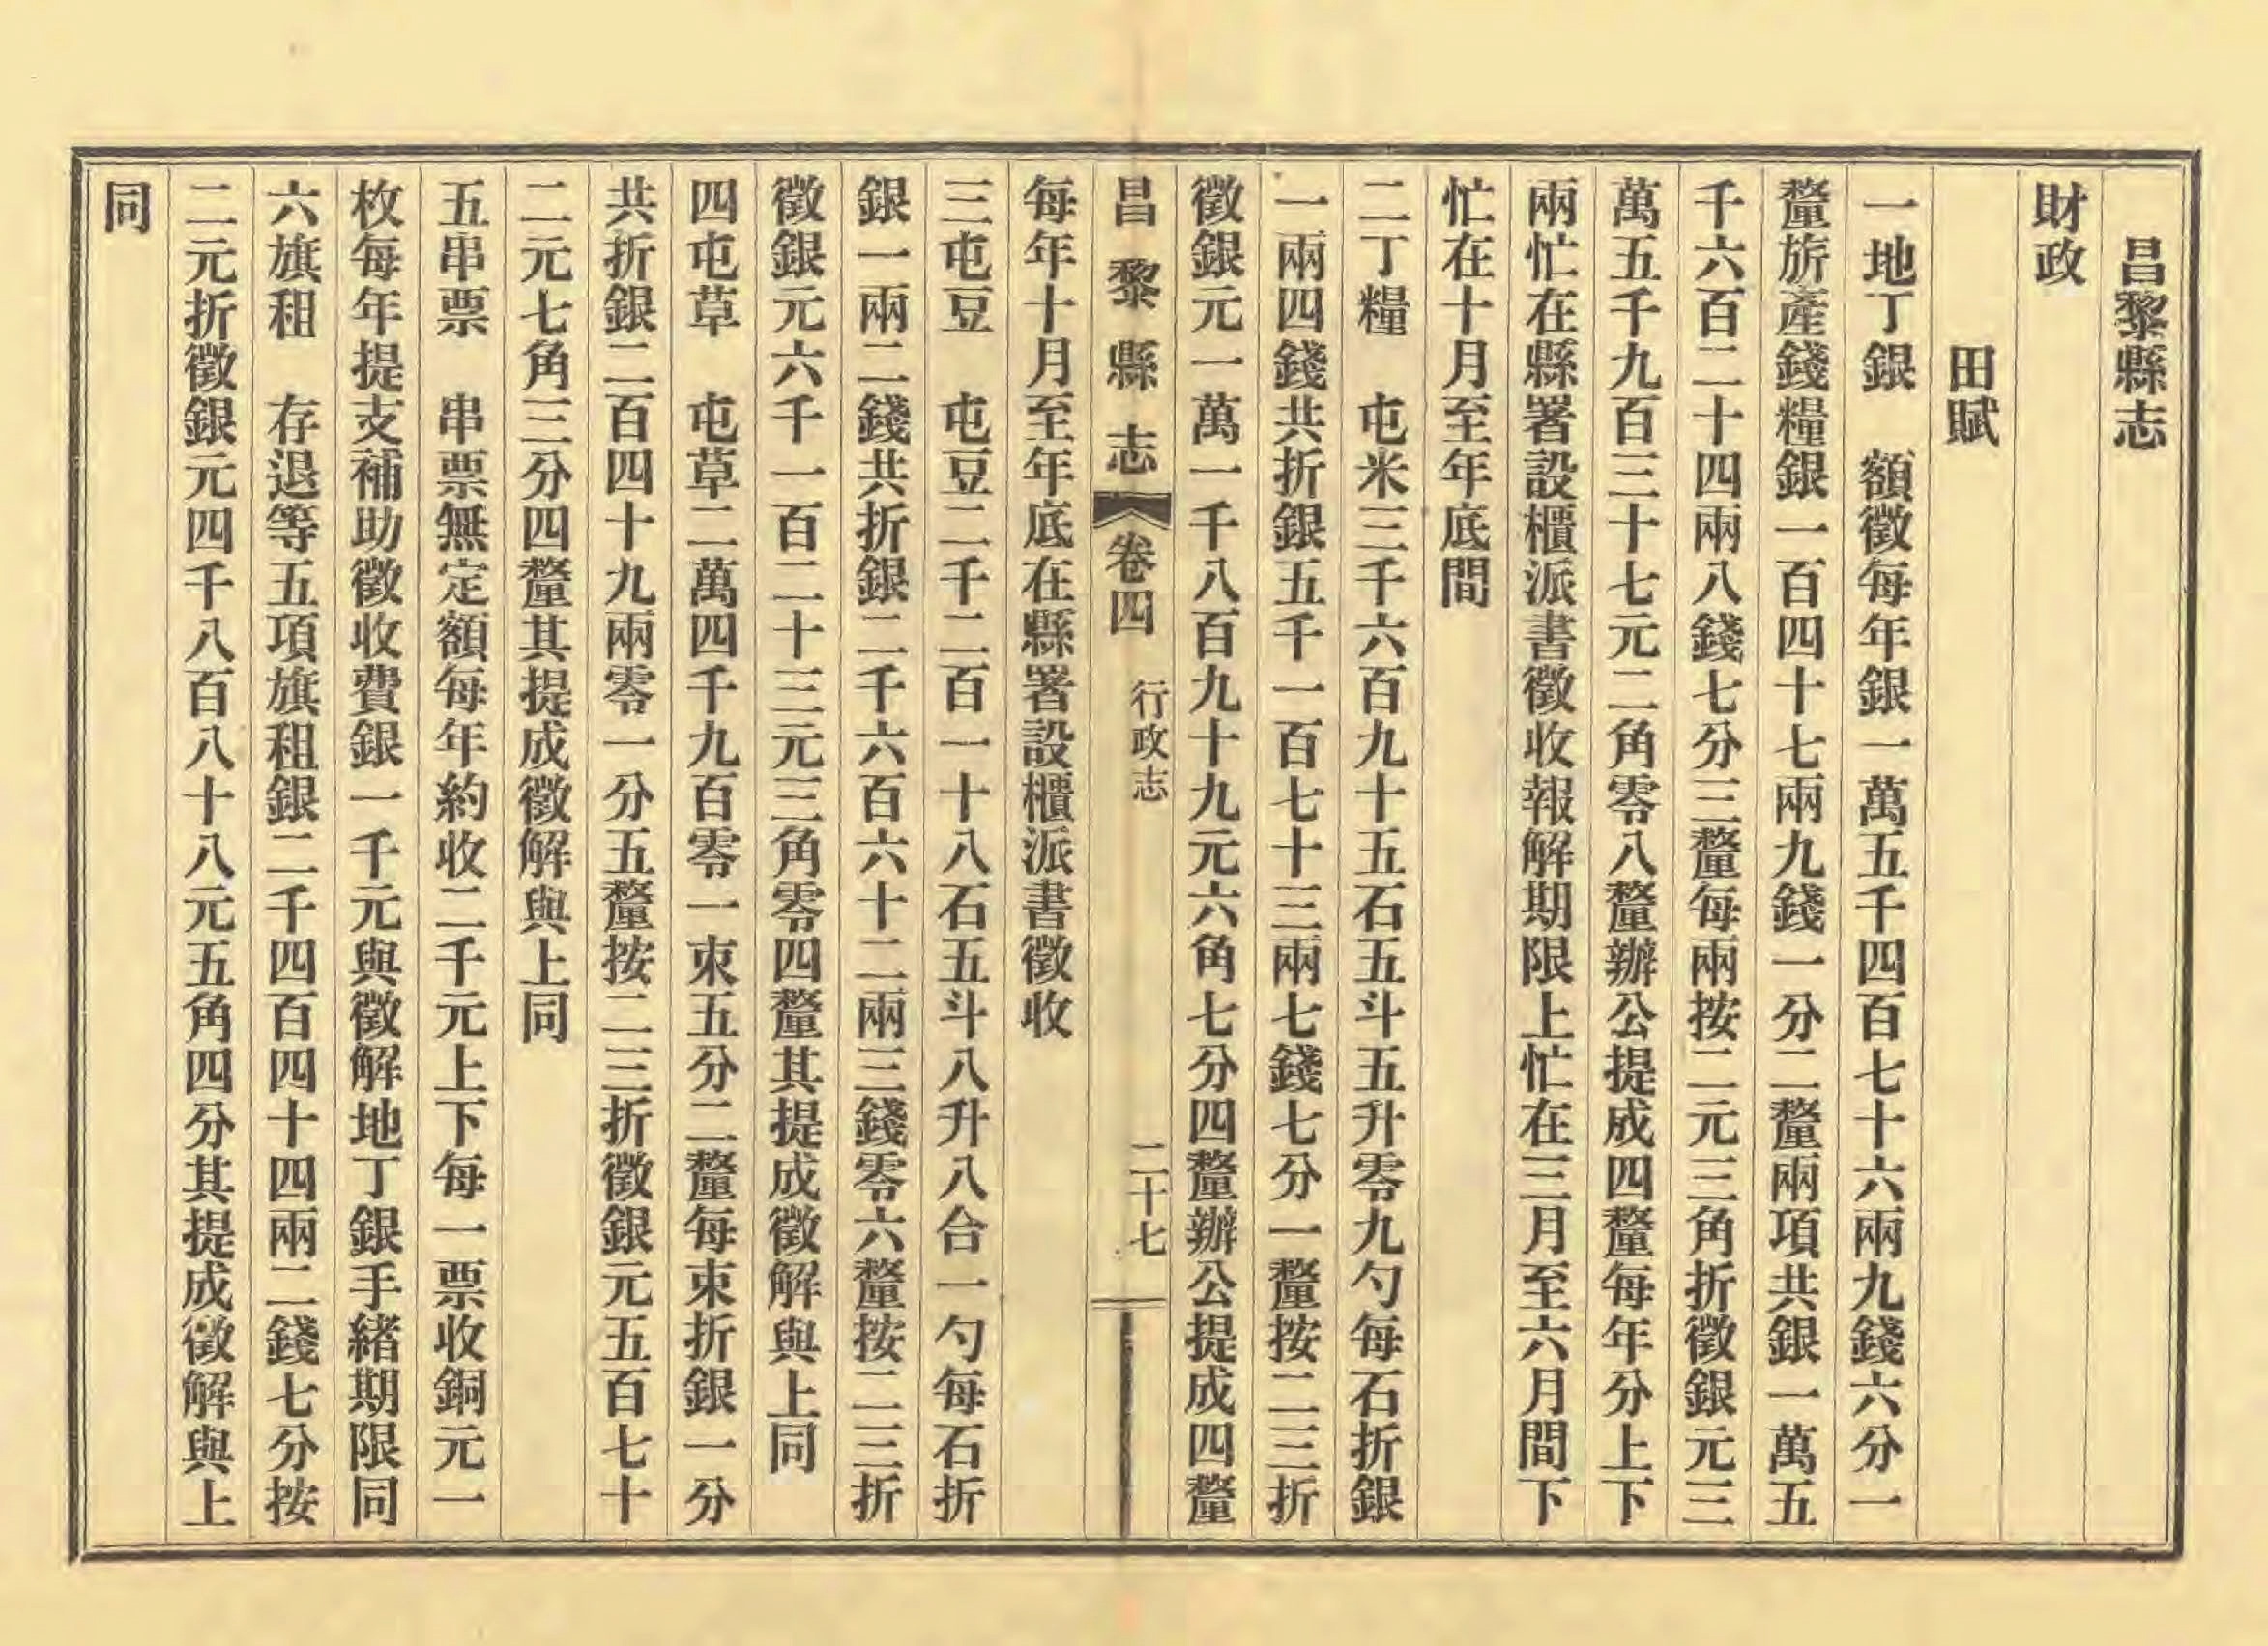 昌黎縣志
財政
田賦
一地丁銀　額徵每年銀一萬五千四百七十六兩九錢六分一
釐旂產錢糧銀一百四十七兩九錢一分二釐兩項共銀一萬五
千六百二十四兩八錢七分三釐每兩按二元三角折徵銀元三
萬五千九百三十七元二角零八釐辦公提成四釐每年分上下
兩忙在縣署設櫃派書徵收報解期限上忙在三月至六月間下
忙在十月至年底間
二丁糧　屯米三千六百九十五石五斗五升零九勺每石折銀
一兩四錢共折銀五千一百七十三兩七錢七分一釐按二三折
徵銀元一萬一千八百九十九元六角七分四釐辦公提成四釐
昌黎縣志　卷四　行政志　二十七
每年十月至年底在縣署設櫃派書徵收
三屯豆　屯豆二千二百一十八石五斗八升八合一勺每石折
銀一兩二錢共折銀二千六百六十二兩三錢零六釐按二三折
徵銀元六千一百二十三元三角零四釐其提成徵解與上同
四屯草　屯草二萬四千九百零一束五分二釐每束折銀一分
共折銀二百四十九兩零一分五釐按二三折徵銀元五百七十
二元七角三分四釐其提成徵解與上同
五串票　串票無定額每年約收二千元上下每一票收銅元一
枚每年提支補助徵收費銀一千元與徵解地丁銀手緒期限同
六旗租　存退等五項旗租銀二千四百四十四兩二錢七分按
二元折徵銀元四千八百八十八元五角四分其提成徵解與上
同